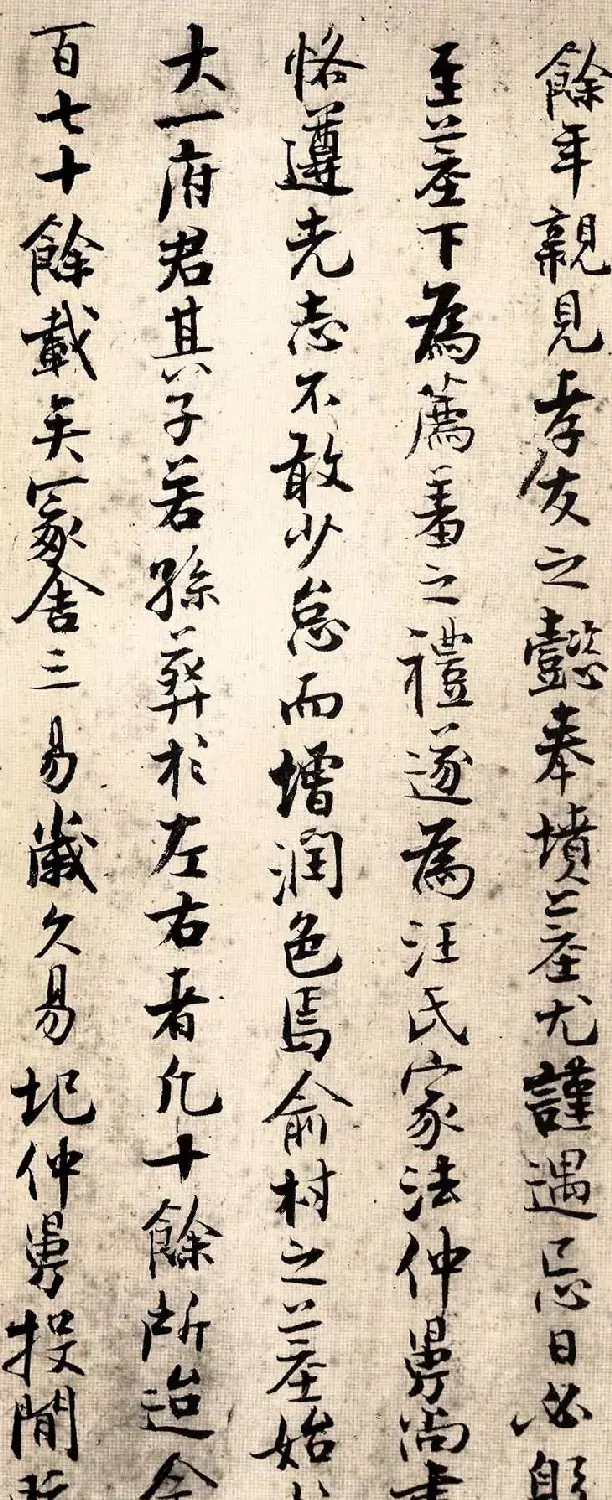 餘年親見孝友之懿奉墳墓尤謹遇忌日必躬
至墓下為薦羞之禮遂為汪氏家法仲舅尚書
恪遵先志不敢少怠而增潤色焉俞村之墓始於
大一府君其子若孫葬於左右者凡十餘所迨今
百七十餘載矣冢舍三易歲久易圮仲舅投閒